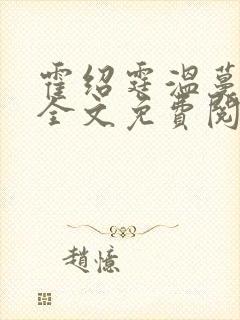 霍绍霆温蔓
全文免费阅
趙憶